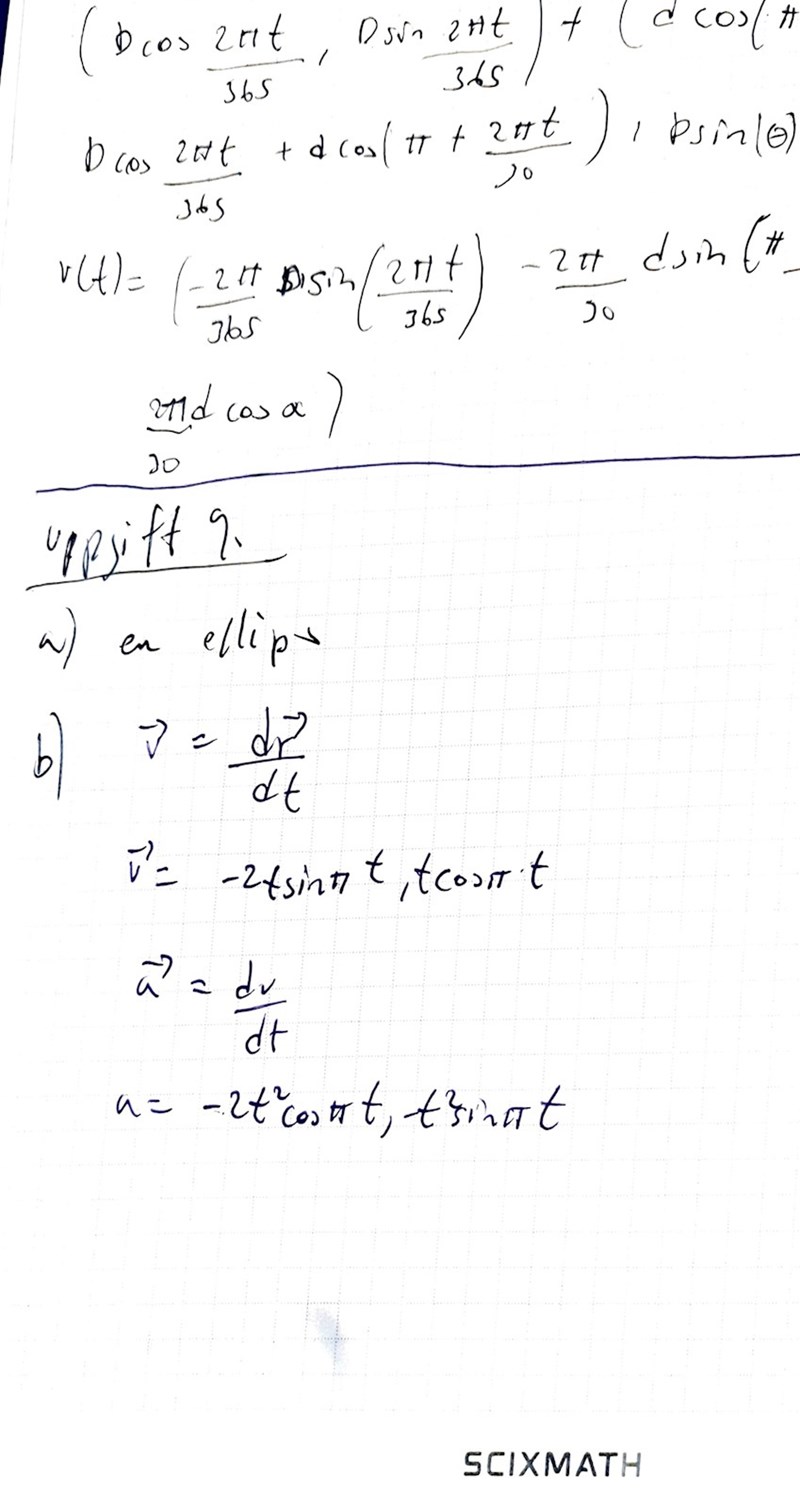 (D cos 2πt/365, D sin 2πt/365) + (d cos(π
D cos 2πt/365 + d cos(π + 2πt/30), D sin(θ)
v(t)= (-2π/365 D sin(2πt/365) -2π/30 d sin(π
2π/30 d cos α)
uppgift 9.
a) en ellips
b) v⃗ = dr⃗/dt
v⃗ = -2t sin π t, t cos π·t
a⃗ = dv/dt
a = -2t² cos π t, -t² sin π t
SCIXMATH